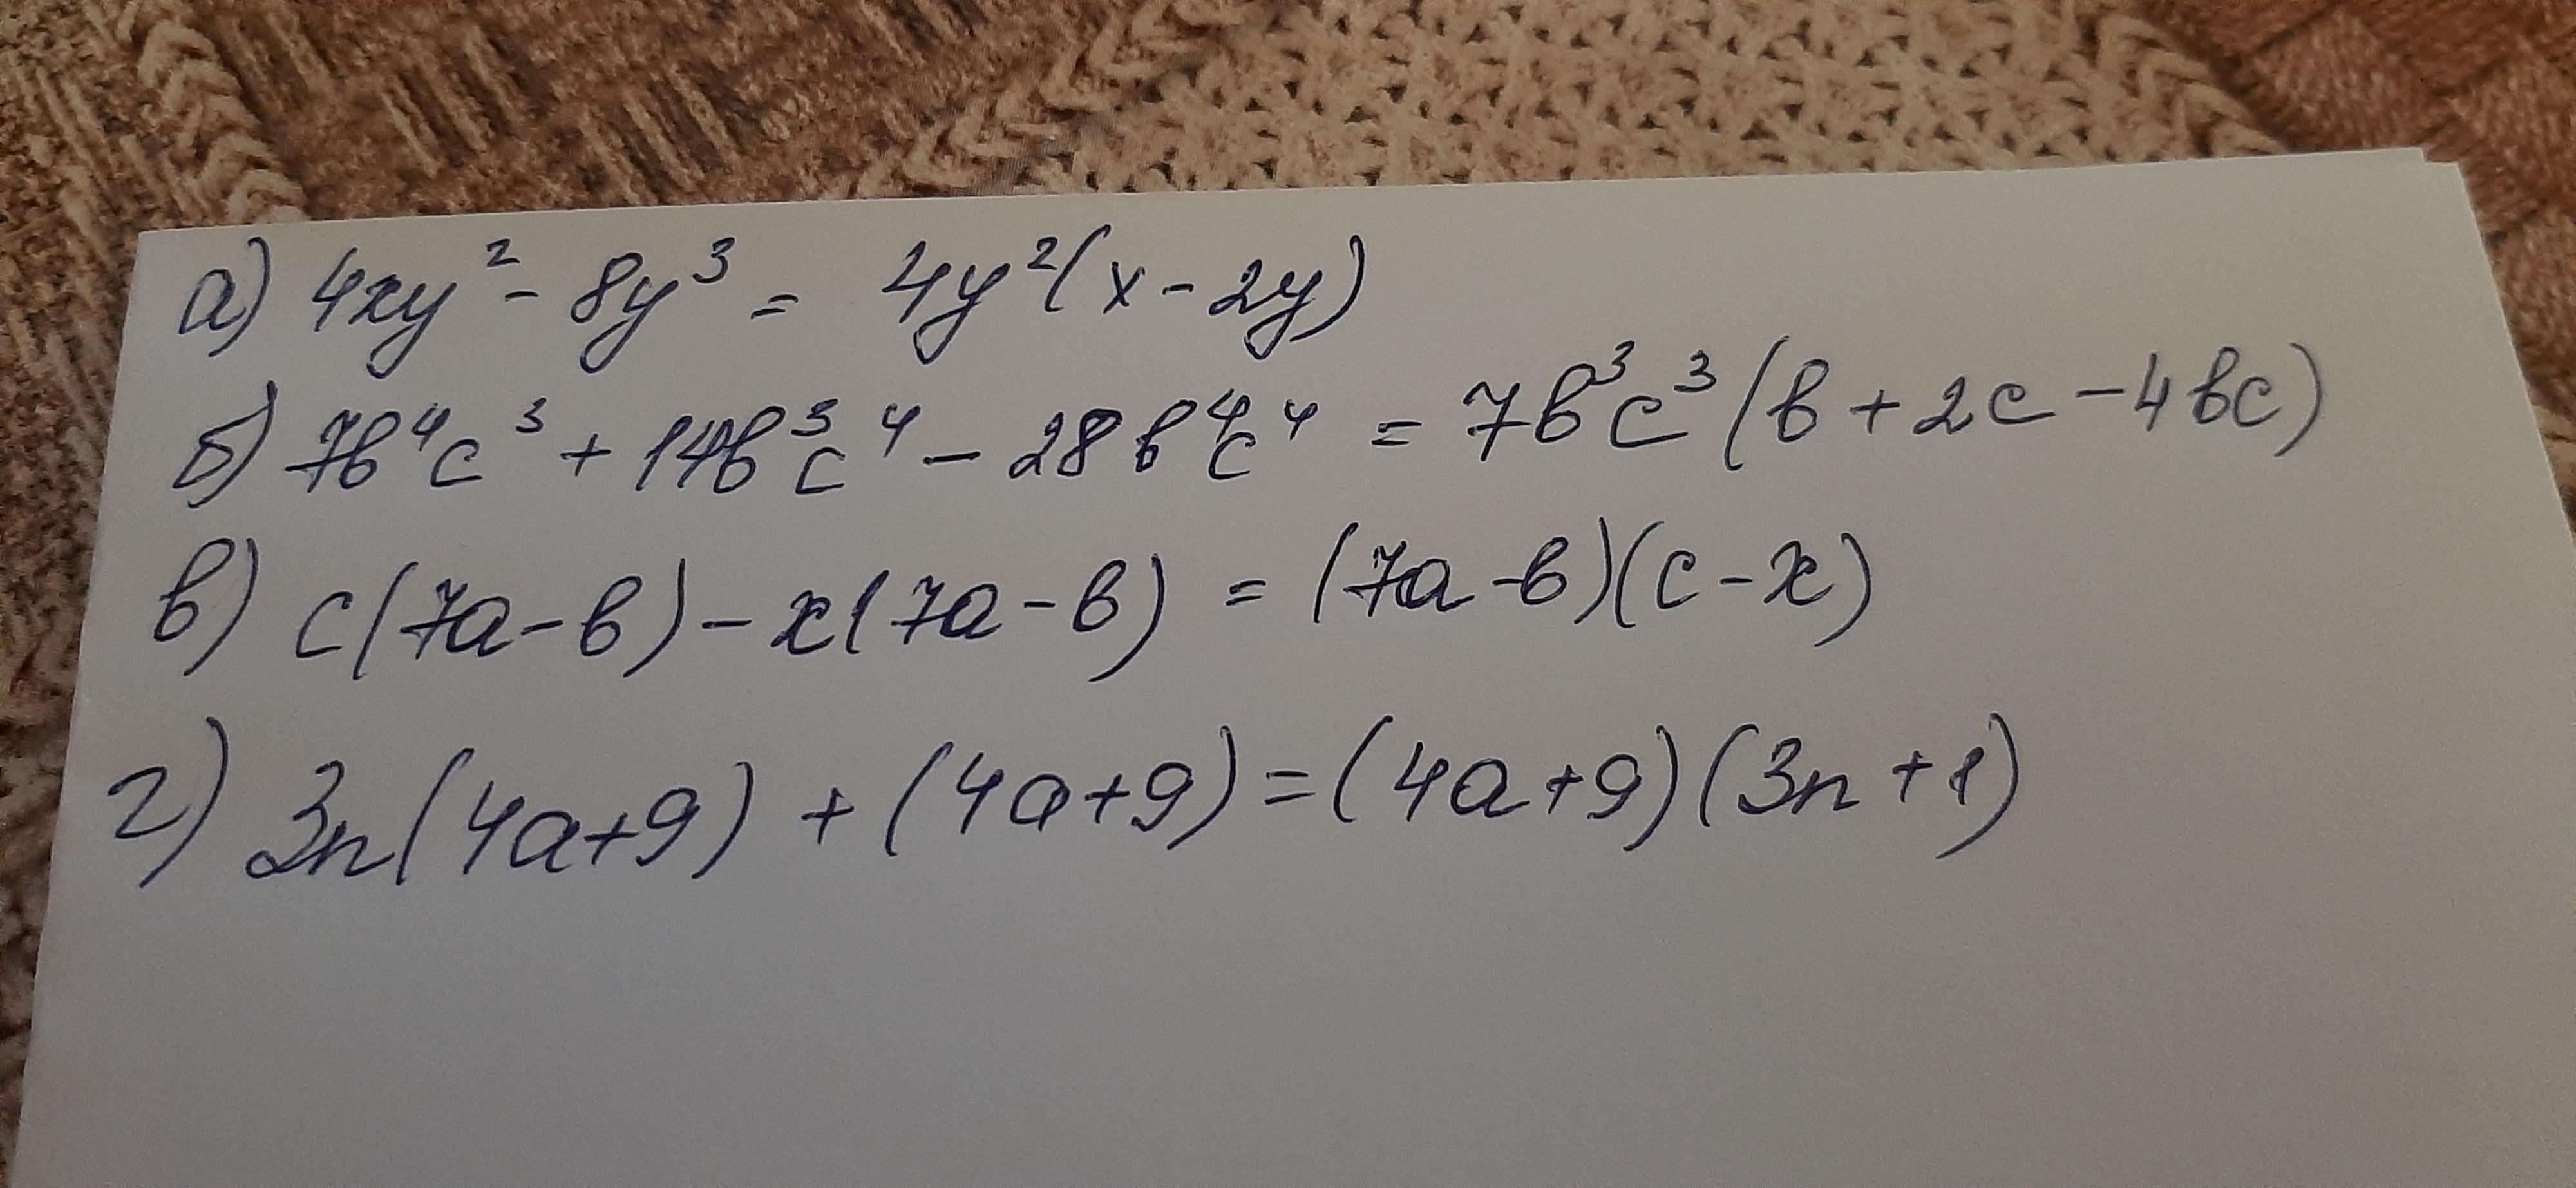 а) 4xy² - 8y³ = 4y²(x - 2y)
б) 7b⁴c³ + 14b³c⁴ - 28b⁴c⁴ = 7b³c³(b + 2c - 4bc)
в) c(7a - b) - x(7a - b) = (7a - b)(c - x)
г) 3n(4a+9) + (4a+9) = (4a+9)(3n+1)